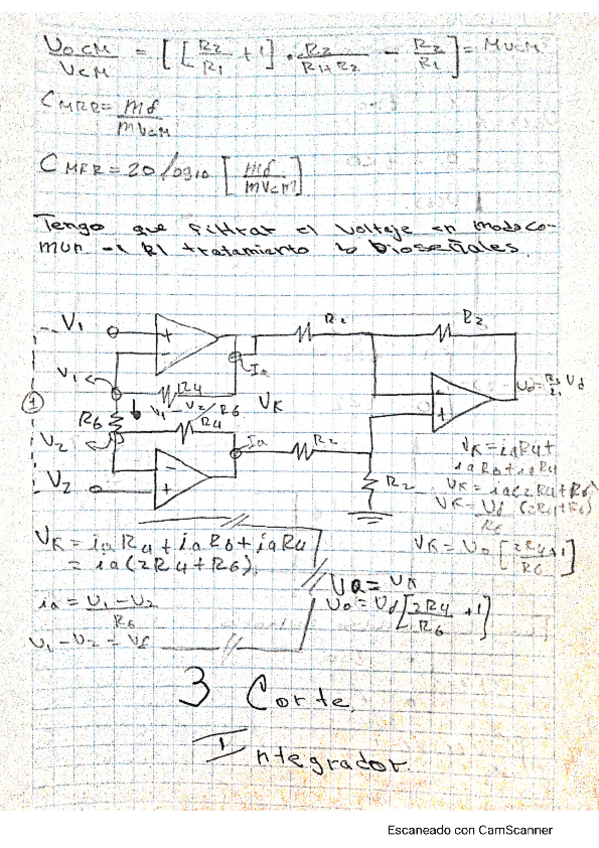 Vocm/Vcm = [[R2/R1 + 1] · R2/R1+R2 - R2/R1] = mvcm
CMRR = md/mvcm
CMRR = 20 log10 [md/mvcm]
Tengo que filtrar el voltaje en modo co-
mun
tratamiento bioseñales.
V1
+
-
R2
R2
Ia
V1
R4
V1 - V2/R6
VK
-
+
1
R6
R4
V2
Ia
R2
V2
-
+
R2
VK = iaR4 +
iaR6 + iaR4
VK = ia(2R4 + R6)
VK = Vd/R6 (2R4 + R6)
VK = ia R4 + ia R6 + ia R4
= ia (2R4 + R6)
VK = Vd [2R4/R6 + 1]
ia = V1 - V2/R6
Vo = VK
Vo = Vd [2R4/R6 + 1]
V1 - V2 = Vd
3 Corte
Integrador.
Escaneado con CamScanner